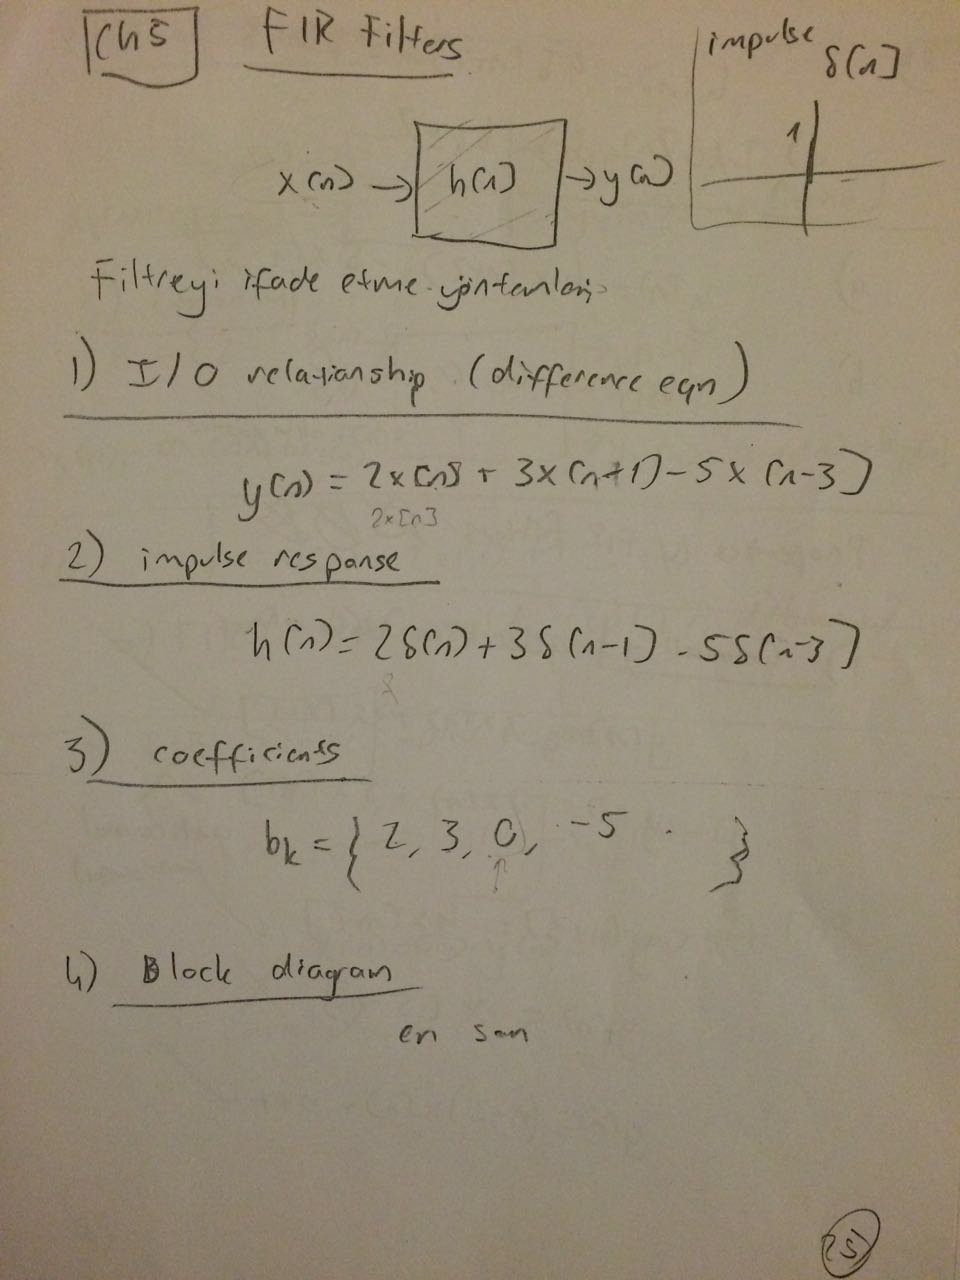 Ch5 FIR Filters
impulse
δ[n]
1
x[n] → h[n] → y[n]
Filtreyi ifade etme yöntemleri
1) I/O relationship (difference eqn)
y[n] = 2x[n] + 3x[n+1] - 5x[n-3]
2x[n]
2) impulse response
h[n] = 2δ[n] + 3δ[n-1] - 5δ[n-3]
3) coefficients
bk = { 2, 3, 0, -5 }
↑
4) Block diagram
en son